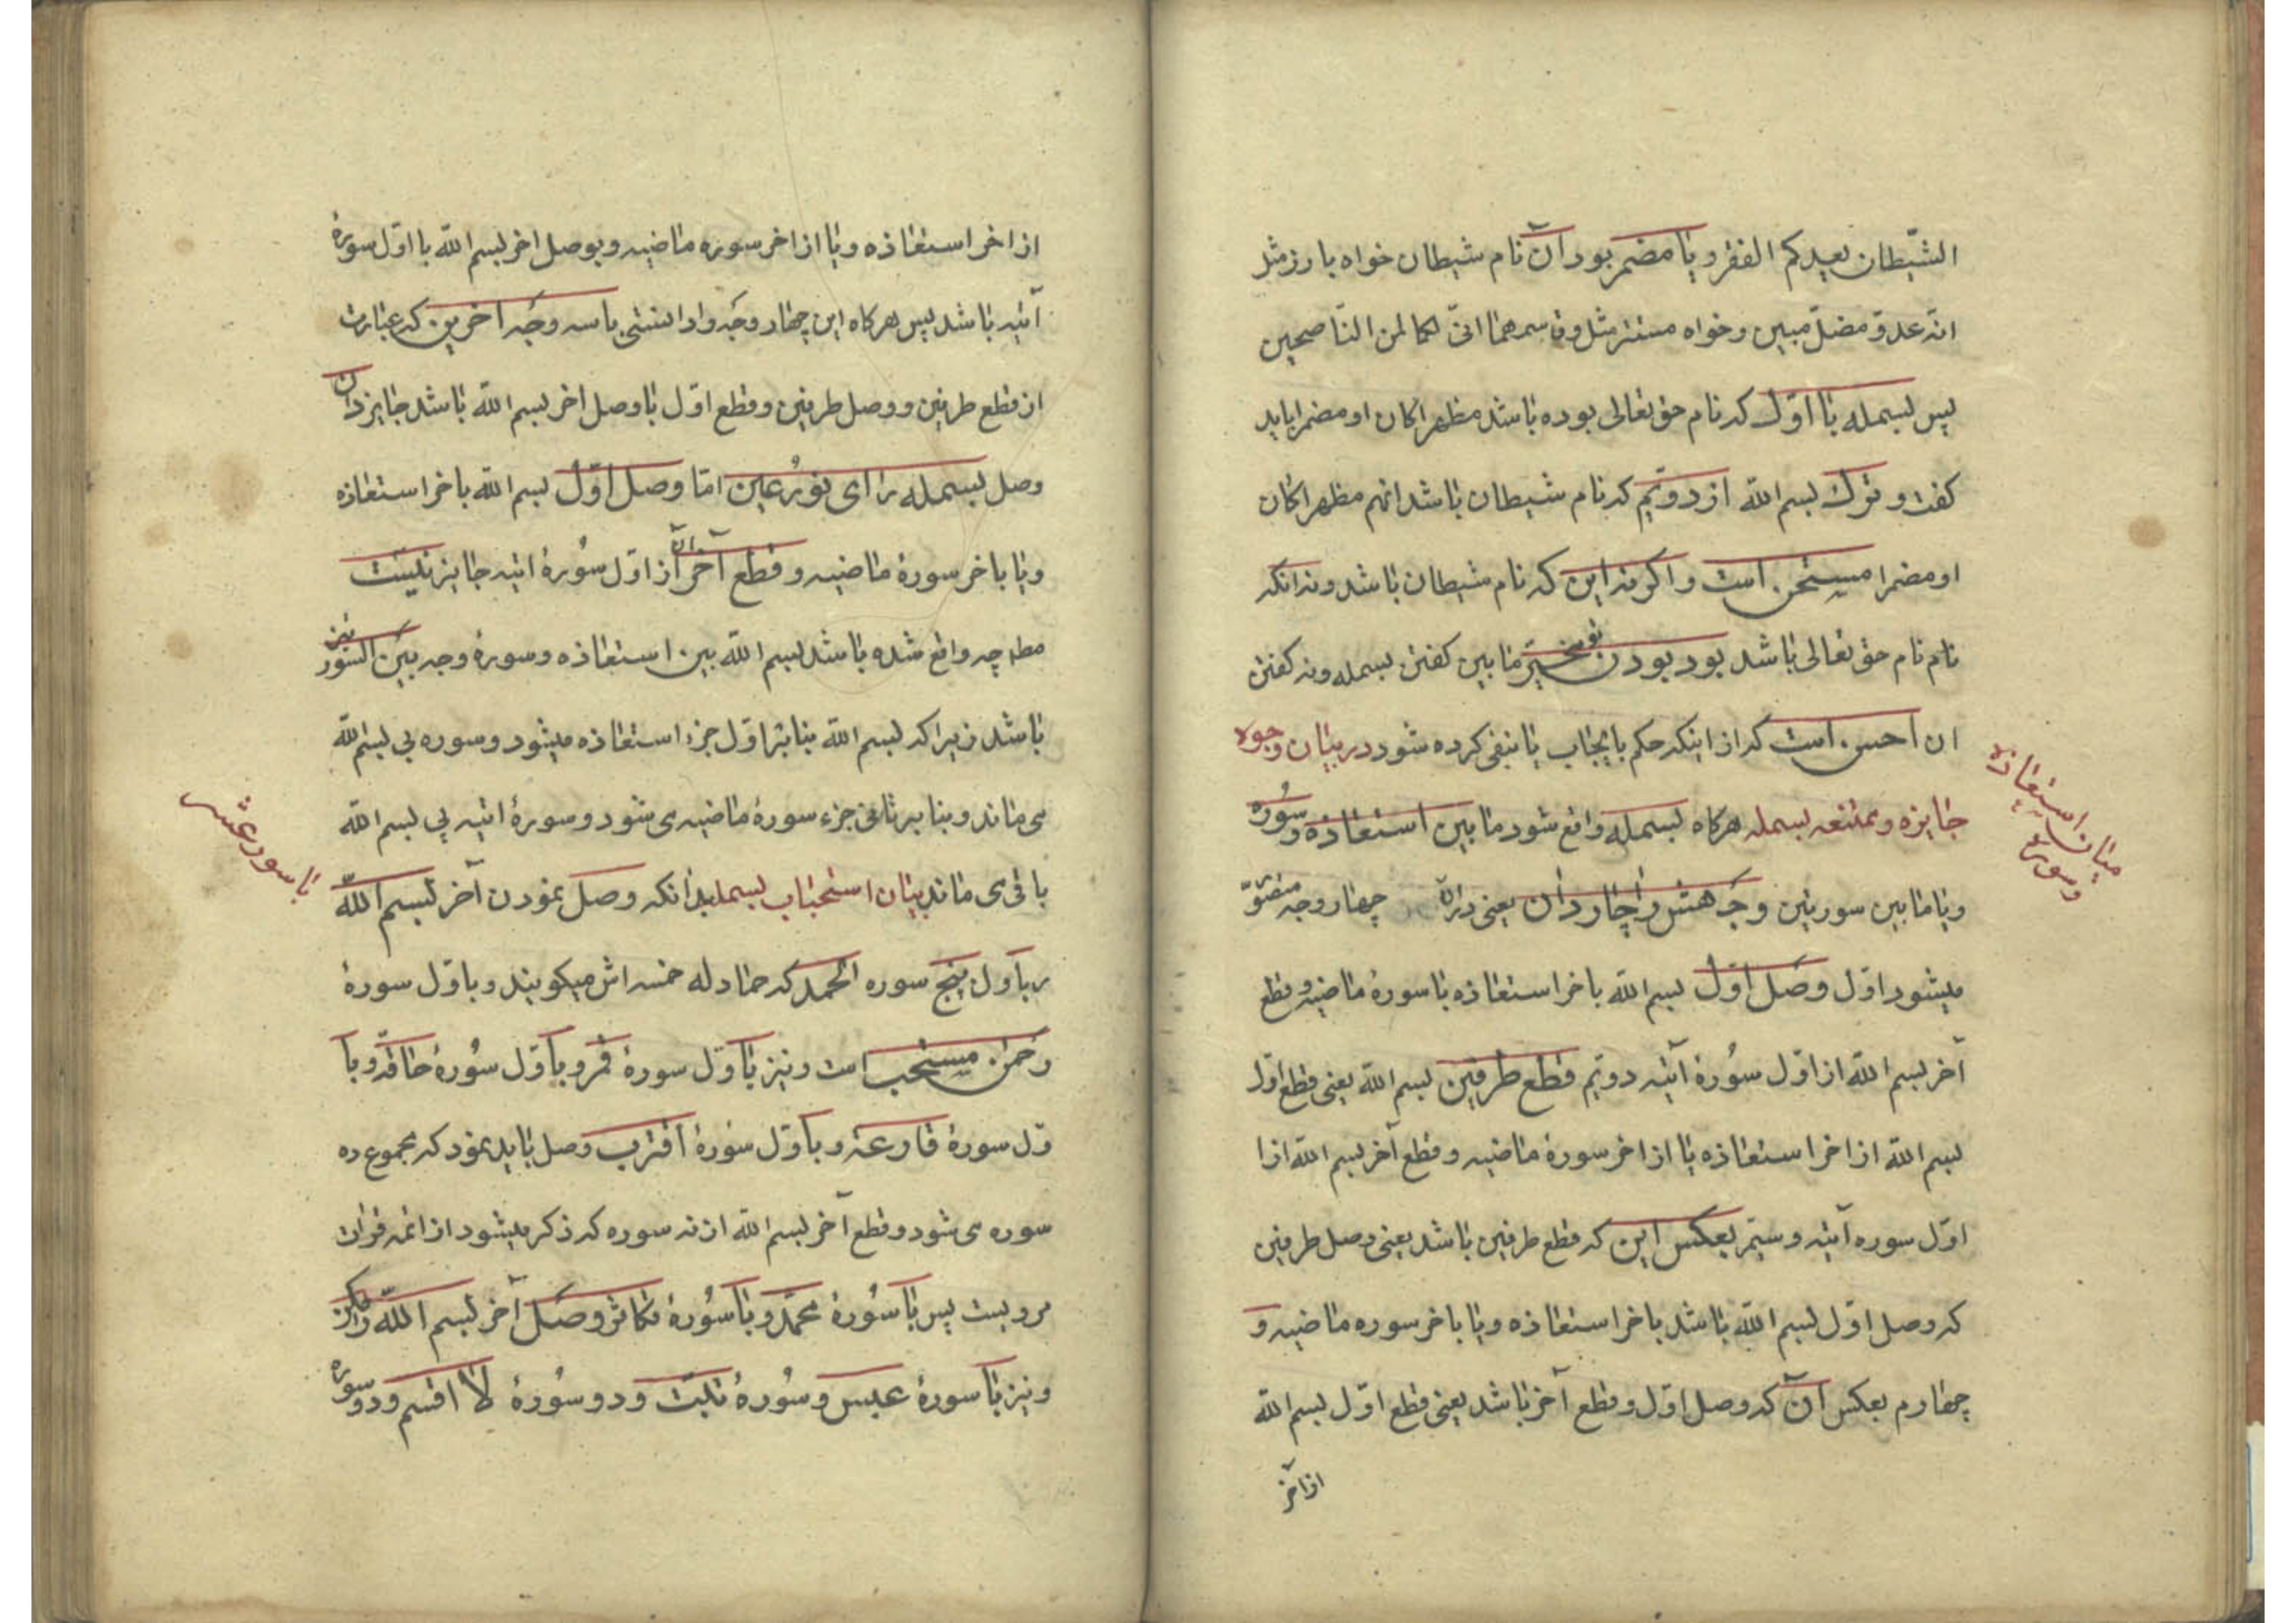 الشّیطان یعدکم الفقر و یا مضمر بود آن نام شیطان خواه بارز مثل
انّه عدوّ مضلّ مبین و خواه مستتر مثل و قاسمهما انّی لکما لمن النّاصحین
پس بسمله با اوّل که نام حق تعالی بوده باشد مظهرا کان او مضمرا باید
کفت و ترک بسم اللّه از دویّم که نام شیطان باشد انهم مظهرا کان
او مضمرا مستحن است و اکر نه این که نام شیطان باشد و نه انکه
نام نام حق تعالی باشد بود بودن تو مخیّر ما بین کفتن بسمله و نه کفتن
ان احسن است که از اینکه حکم بایجاب یا بنفی کرده شود در بیان وجوه
میان استعاذه
و سوره
جایزه و ممتنعه بسمله هرکاه بسمله واقع شود ما بین استعاذه و سوره
و یا ما بین سورتین وجه هشوا چار دان یعنی دران چهار وجه متصوّ
میشود اوّل وصل اوّل بسم اللّه باخر استعاذه یا سورهٔ ماضیه و قطع
آخر بسم اللّه از اوّل سُورهٔ آتیه دویّم قطع طرفین بسم اللّه یعنی قطع اوّل
بسم اللّه از اخر استعاذه یا از اخر سورهٔ ماضیه و قطع آخر بسم اللّه از ا
اوّل سوره آتیه و سیّم بعکس این که قطع طرفین باشد یعنی وصل طرفین
که وصل اوّل بسم اللّه باشد باخر استعاذه و یا باخر سوره ماضیه و
چهارم بعکس آن که وصل اوّل و قطع آخر باشد یعنی قطع اوّل بسم اللّه
از آخر
از اخر استعاذه و یا از اخر سوره ماضیه و بوصل اخر بسم اللّه با اوّل سورهٔ
آتیه باشد پس هرکاه این چهار وجه را دانستی با سه وجه آخرین که عبارت
از قطع طرفین و وصل طرفین و قطع اوّل با وصل اخر بسم اللّه باشد جایز دان
وصل بسمله را ای نور عین امّا وصل اوّل بسم اللّه باخر استعاذه
و یا باخر سورهٔ ماضیه و قطع آخر آن از اوّل سُورهٔ اتیه جایز نیست
مط چه واقع شده باشد بسم اللّه بین استعاذه و سورهٔ و چه بین السّورتین
باشد زیرا که بسم اللّه بنا بر اوّل جزء استعاذه میشود و سوره بی بسم اللّه
می ماند و بنا بر ثانی جزء سورهٔ ماضیه می شود و سورهٔ اتیه بی بسم اللّه
با سور عشر
باقی می ماند بیان استحباب بسمله بدانکه وصل نمودن آخر بسم اللّه
بر باول پنج سوره الحمد که حمادله خمسه اش میکویند و باوّل سورهٔ
رحمن مستحب است و نیز باوّل سورهٔ قمر و باوّل سُورهٔ حاقّه و با
وّل سورهٔ قارعه و باوّل سورهٔ اقترب وصل باید نمود که مجموع ده
سوره می شود و قطع آخر بسم اللّه از نه سوره که ذکر میشود از ائمه قرات
مرویست پس با سُورهٔ محمّد و با سُورهٔ تکاثر وصل آخر بسم اللّه
و نیز با سورهٔ عبس و سُورهٔ تبّت و دو سُورهٔ لا اقسم و دو سوره